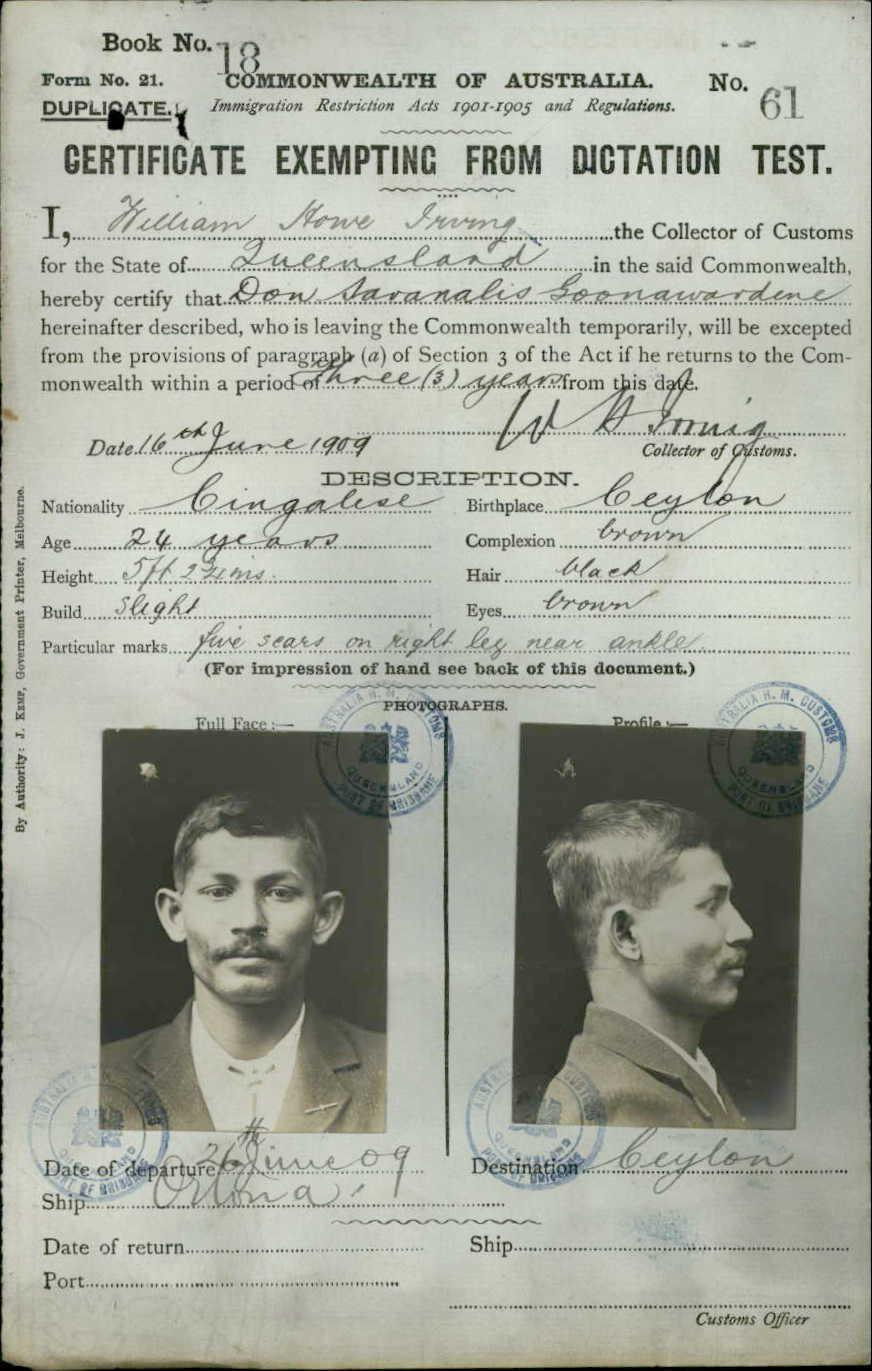 Book No. 18
Form No. 21. COMMONWEALTH OF AUSTRALIA. No. 61
DUPLICATE. Immigration Restriction Acts 1901-1905 and Regulations.
CERTIFICATE EXEMPTING FROM DICTATION TEST.
I, William Howe Irving the Collector of Customs
for the State of Queensland in the said Commonwealth,
hereby certify that Don Savanalis Goonawardene
hereinafter described, who is leaving the Commonwealth temporarily, will be excepted
from the provisions of paragraph (a) of Section 3 of the Act if he returns to the Com-
monwealth within a period of three (3) years from this date.
W H Irving
Date 16th June 1909 Collector of Customs.
DESCRIPTION.
Nationality Cingalese Birthplace Ceylon
Age 24 years Complexion brown
Height 5ft 2¾ins. Hair black
Build Slight Eyes brown
Particular marks five scars on right leg near ankle
(For impression of hand see back of this document.)
PHOTOGRAPHS.
Full Face:— Profile:—
AUSTRALIA H. M. CUSTOMS QUEENSLAND PORT OF BRISBANE
AUSTRALIA H. M. CUSTOMS QUEENSLAND PORT OF BRISBANE
AUSTRALIA H. M. CUSTOMS QUEENSLAND PORT OF BRISBANE
AUSTRALIA H. M. CUSTOMS QUEENSLAND PORT OF BRISBANE
Date of departure 26th June 09 Destination Ceylon
Ship
Date of return Ship
Port
Customs Officer
By Authority: J. Kemp, Government Printer, Melbourne.